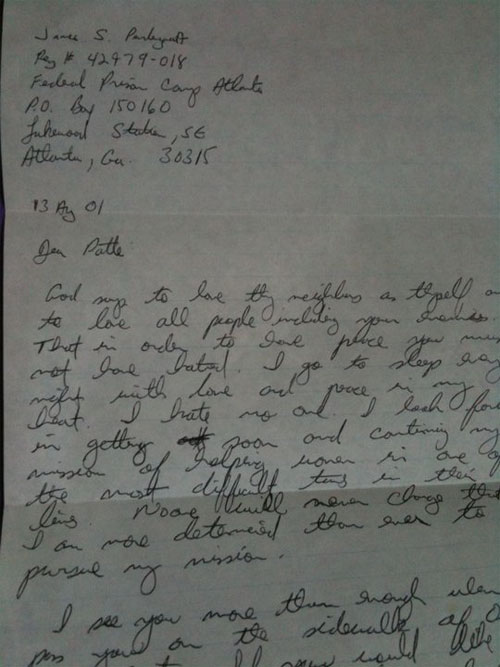 James S. Pendergraft
Reg # 42979-018
Federal Prison Camp Atlanta
P.O. Box 150160
Lakewood Station, SE
Atlanta, Ga. 30315
13 Aug 01
Dear Patte
God says to love thy neighbors as thyself
to love all people including your enemies.
That in order to have peace you must
not have hatred. I go to sleep every
night with love and peace in my
heart. I hate no one. I look
in getting out soon and continuing my
mission of helping women in one of
the most difficult times in their
lives. No one will never change that
I am more determined than ever to
pursue my mission.
I see you more than enough when
pass you on the sidewalk
would like